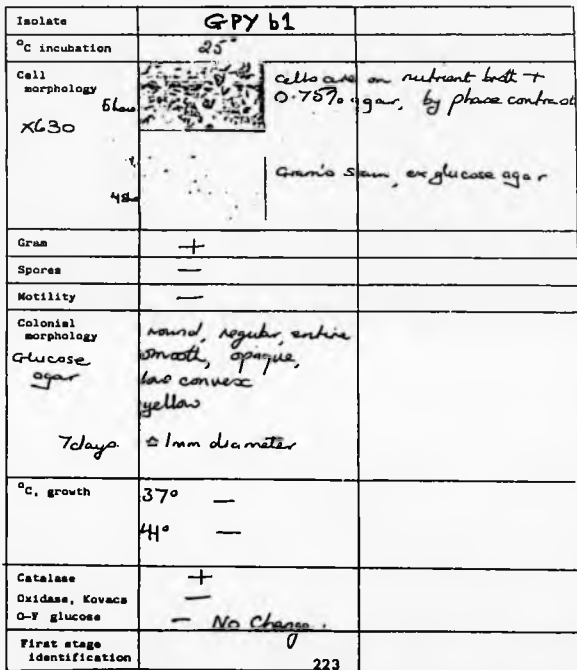 Isolate GPY b1
°C incubation 25°
Cell morphology
x630
cells are on nutrient broth +
0.75% agar, by phase contrast
Gram's stain, ex glucose agar
Gram +
Spores —
Motility —
Colonial morphology
Glucose agar
round, regular, entire
smooth, opaque,
low convex
yellow
7days ≏ 1mm diameter
°C, growth 37° —
41° —
Catalase +
Oxidase, Kovacs —
O-F glucose — No Change.
First stage
identification
223